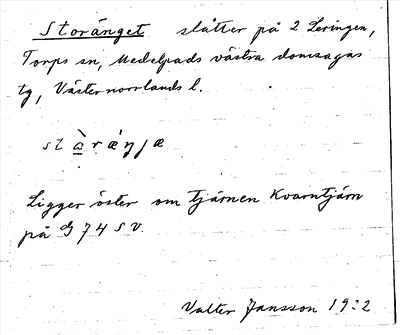 Storänget slåtter på 2 Leringen,
Torps sn, Medelpads västra domsagas
tg, Västernorrlands l.
Ligger öster om tjärnen Kvarntjärn
på G 74 SV.
Valter Jansson